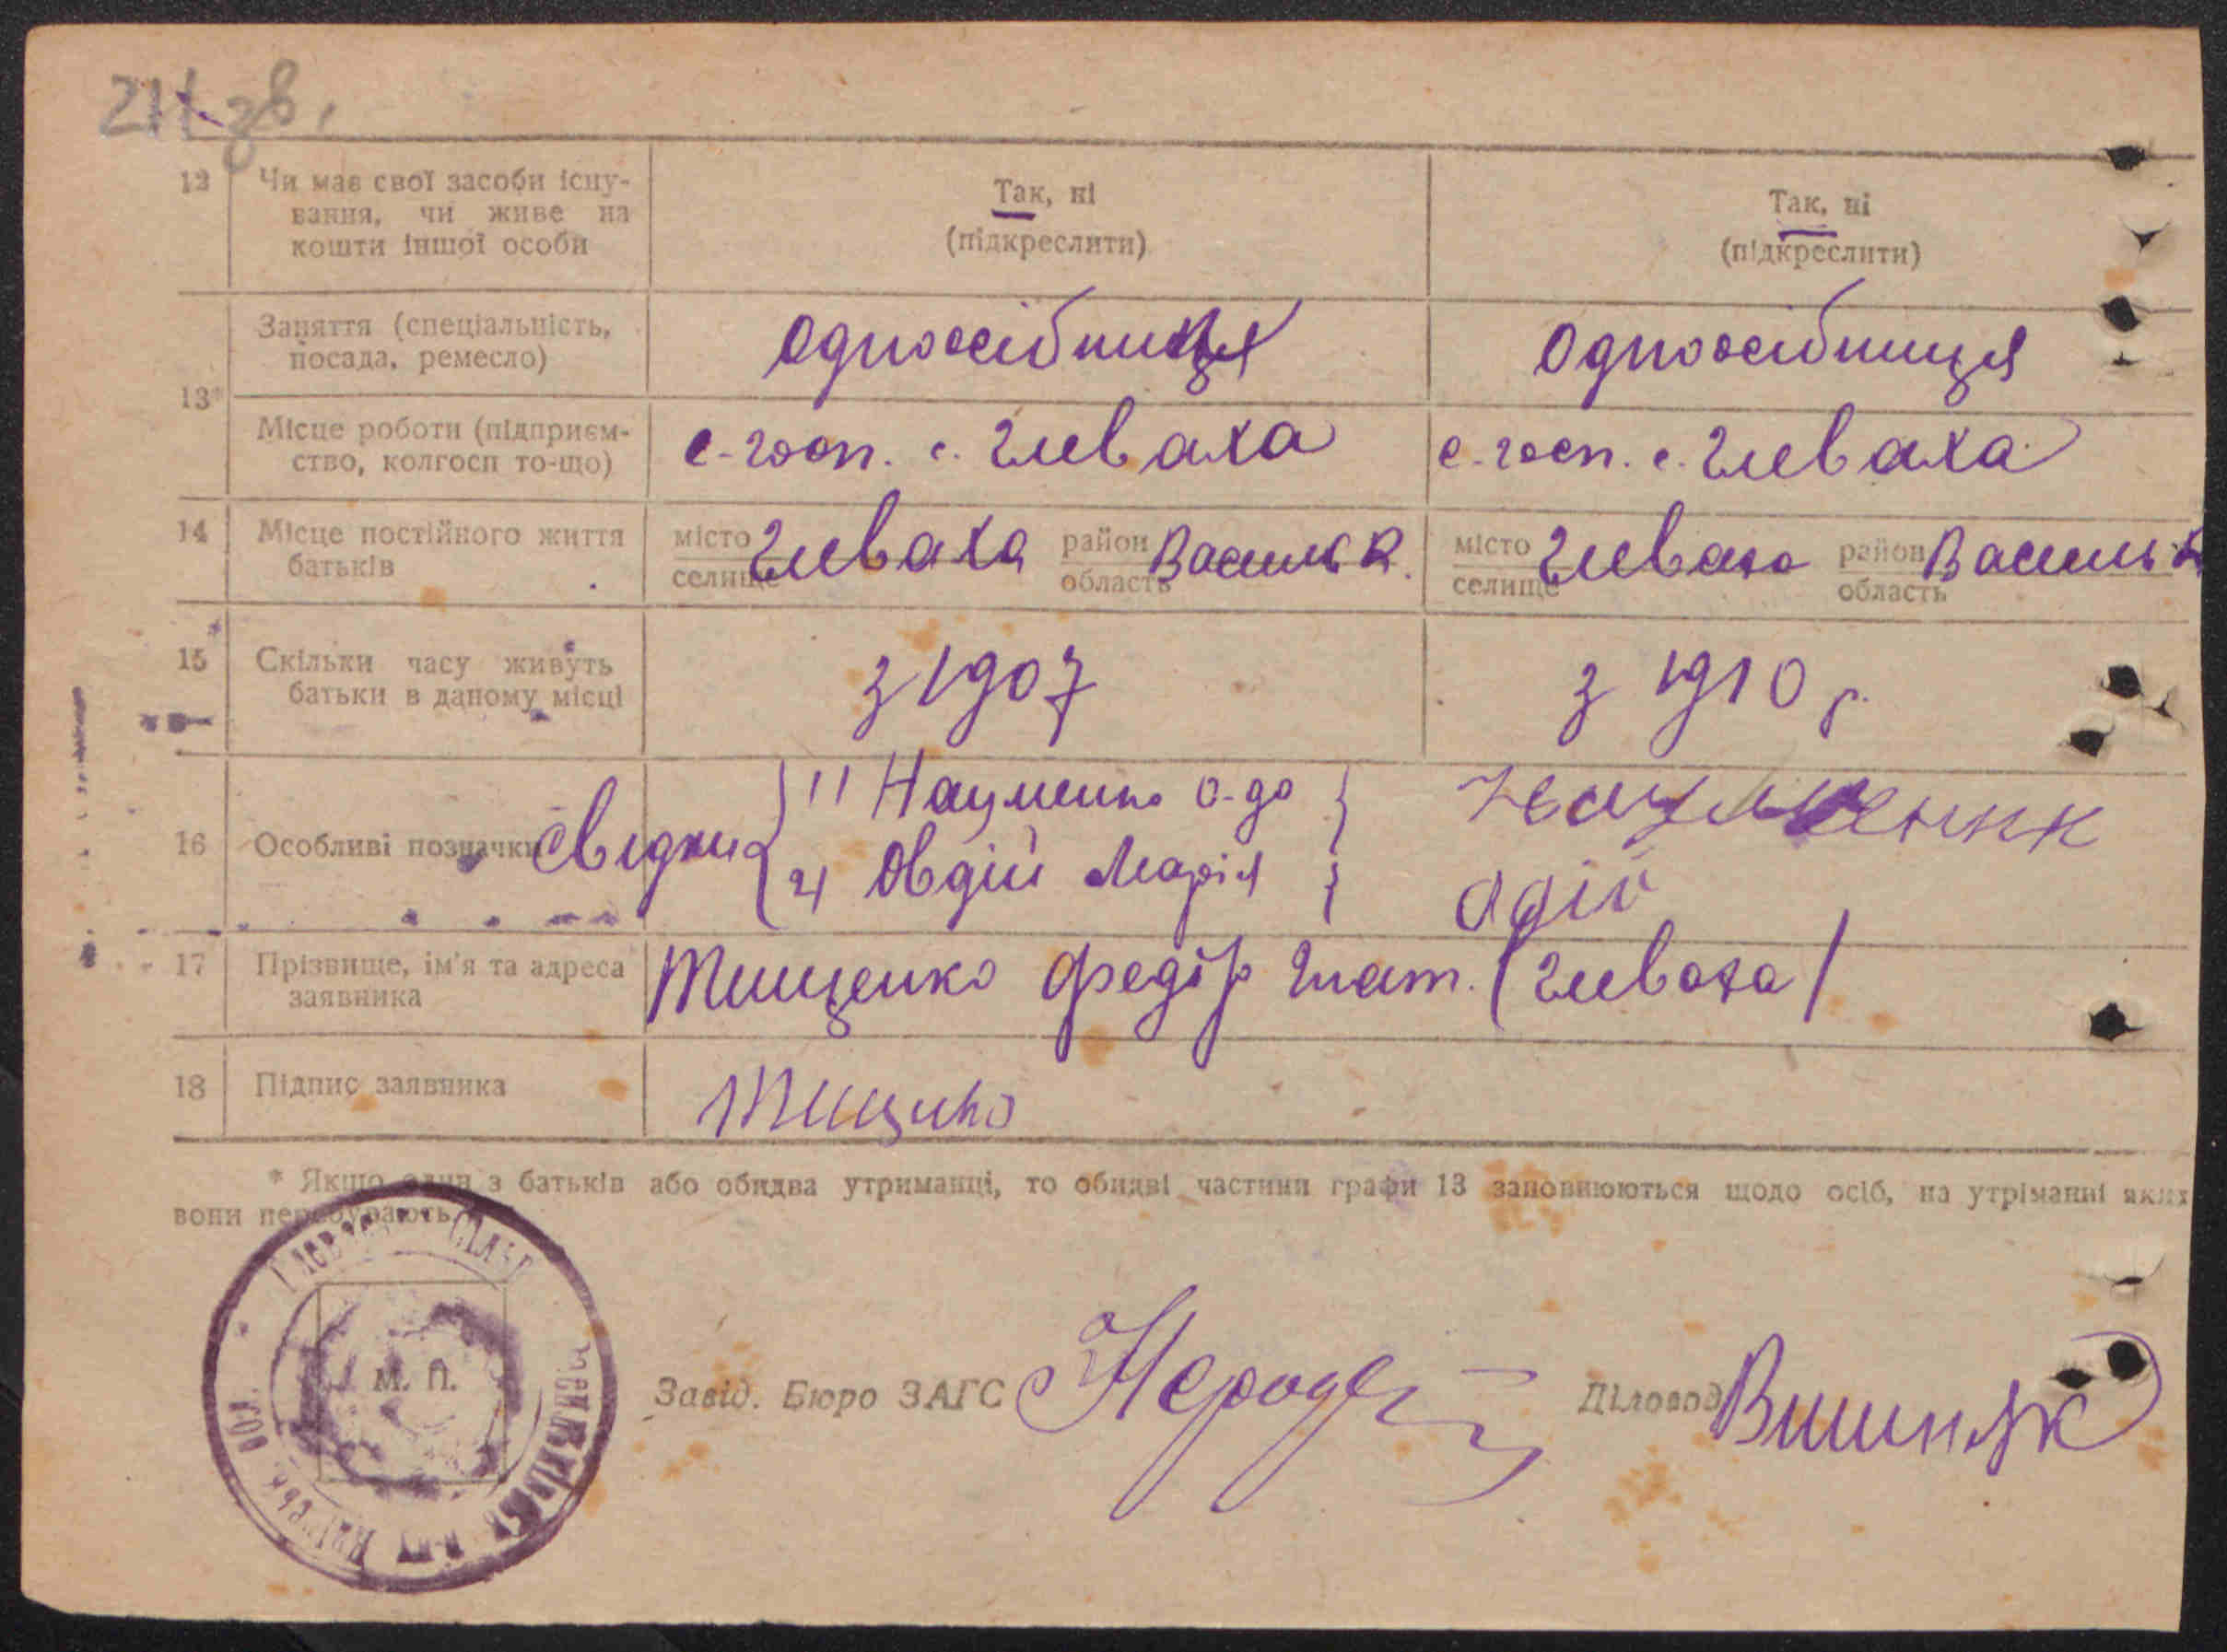 12 Чи має свої засоби існу-
вання, чи живе на
кошти іншої особи
Так, ні
(підкреслити)
Так, ні
(підкреслити)
13*
Заняття (спеціальність,
посада, ремесло)
Односібниця
Односібниця
Місце роботи (підприєм-
ство, колгосп то-що)
с-госп. с. Глеваха
с-госп. с. Глеваха
14 Місце постійного життя
батьків
місто
селище
Глеваха
район
область
Васильк.
місто
селище
Глеваха
район
область
Васильк
15 Скільки часу живуть
батьки в даному місці
з 1907
з 1910 р.
16 Особливі позначки
свідки
1) Науменко О-до
2) Овдій Марія
Науменкк
Одій
17 Прізвище, ім'я та адреса
заявника
Тищенко Федір Гнат. (Глеваха)
18 Підпис заявника
Тищенко
* Якщо один з батьків або обидва утриманці, то обидві частини графи 13 заповнюються щодо осіб, на утріманні яких
вони перебувають.
М. П.
Завід. Бюро ЗАГС
Діловод Вишняк